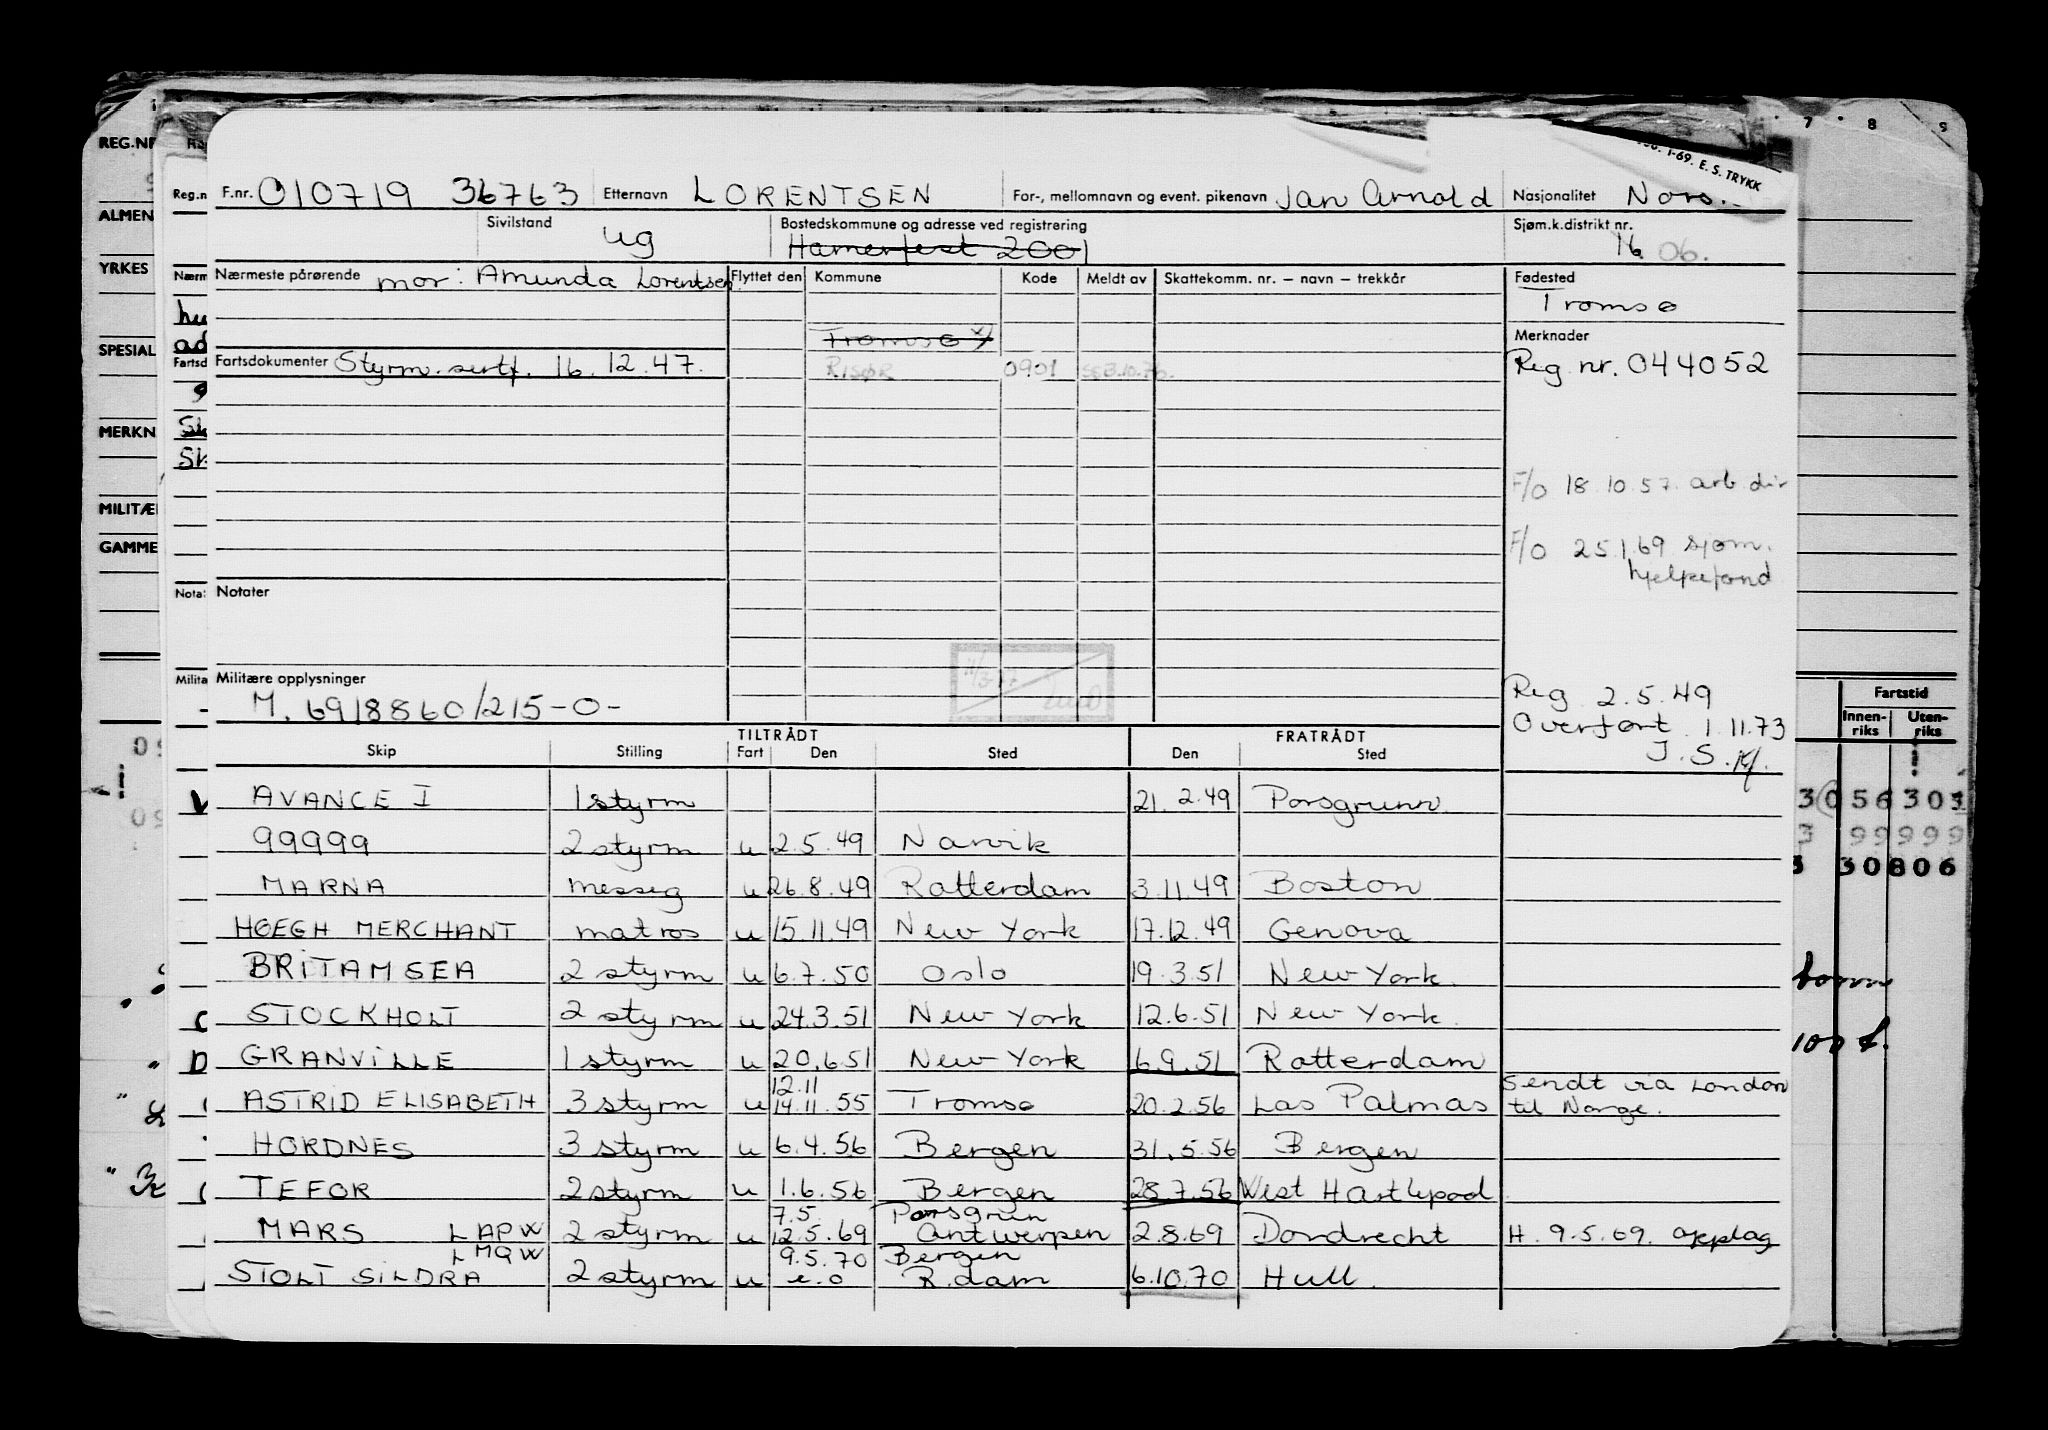 7 8 9
1-69. E. S. TRYKK
REG.NR
ALMEN
YRKES
SPESIAL
MERKN
MILITÆR
GAMME
F.nr. 010719 36763 Etternavn LORENTSEN For-, mellomnavn og event. pikenavn Jan Arnold Nasjonalitet Nors.
Sivilstand ug Bostedskommune og adresse ved registrering Sjøm.k.distrikt nr.
Hamerfest 2001 16 06.
Nærmeste pårørende mor: Amunda Lorentsen Flyttet den Kommune Kode Meldt av Skattekomm. nr. – navn – trekkår Fødested
Tromsø
Tromsø x) Merknader
Fartsdokumenter Styrm. sertf. 16.12.47. RISØR 0901 Reg. nr. 044052
F/O 18.10.57. arb dir
F/O 25.1.69 sjøm.
hjelpefond
Notater
Militære opplysninger
M. 6918860/215-0-
Reg 2.5.49
Overført 1.11.73
J.S.
Fartstid
Innen-riks Uten-riks
TILTRÅDT FRATRÅDT
Skip Stilling Fart Den Sted Den Sted
AVANCE I 1 styrm 21.2.49 Porsgrunn
99999 2 styrm u 2.5.49 Narvik
MARNA messeg u 26.8.49 Rotterdam 3.11.49 Boston
HØEGH MERCHANT matros u 15.11.49 New York 17.12.49 Genova
BRITAMSEA 2 styrm u 6.7.50 Oslo 19.3.51 New York.
STOCKHOLT 2 styrm u 24.3.51 New York 12.6.51 New York.
GRANVILLE 1 styrm u 20.6.51 New York 6.9.51 Rotterdam
12.11 Sendt via London
ASTRID ELISABETH 3 styrm u 14.11.55 Tromsø 20.2.56 Las Palmas til Norge.
HORDNES 3 styrm u 6.4.56 Bergen 31.5.56 Bergen
TEFOR 2 styrm u 1.6.56 Bergen 28.7.56 West Hartlepool
7.5. Porsgrun
MARS LAPW 2 styrm u 12.5.69 Antwerpen 2.8.69 Dordrecht H. 9.5.69. opplag
LMQW 9.5.70 Bergen
STOLT SILDRA 2 styrm u e.o R.dam 6.10.70 Hull.